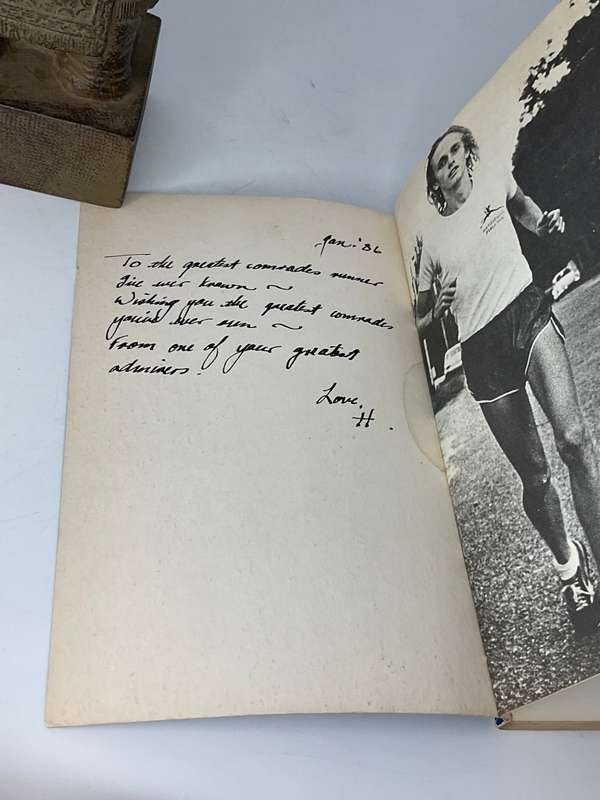 Jan. '86
To the greatest comrades runner
I've ever known ~
Wishing you the greatest comrades
you've ever run ~
From one of your greatest
admirers.
Love,
H.